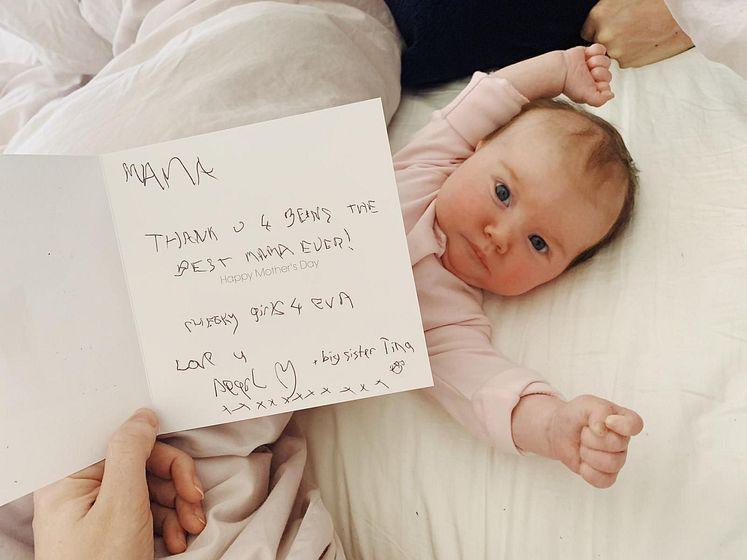 MAMA
THANK U 4 BEING THE
BEST MAMA EVER!
Happy Mother's Day
CHEEKY girls 4 EVA
LOVE U
PEARL + big sister Tina
x x x x x x x x x x x x